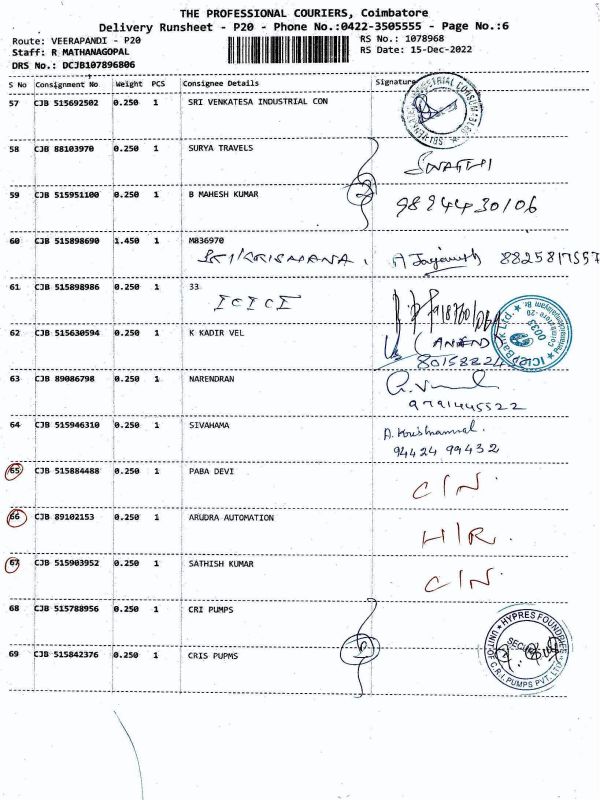 THE PROFESSIONAL COURIERS, Coimbatore
Delivery Runsheet - P20 - Phone No.:0422-3505555 - Page No.:6
Route: VEERAPANDI - P20 RS No.: 1078968
Staff: R MATHANAGOPAL RS Date: 15-Dec-2022
DRS No.: DCJB107896806
S No Consignment No Weight PCS Consignee Details Signature
57 CJB 515692502 0.250 1 SRI VENKATESA INDUSTRIAL CON
58 CJB 88103970 0.250 1 SURYA TRAVELS SWATHI
59 CJB 515951100 0.250 1 B MAHESH KUMAR 9824430106
60 CJB 515898690 1.450 1 M836970
SRI KRISHANA. 8825817557
61 CJB 515898986 0.250 1 33
ICICI
ICICI Bank Ltd. 0033
62 CJB 515630594 0.250 1 K KADIR VEL (ANAND)
63 CJB 89086798 0.250 1 NARENDRAN
9791445522
64 CJB 515946310 0.250 1 SIVAHAMA A. Krishnammal.
94424 99432
65 CJB 515884488 0.250 1 PABA DEVI C/N.
66 CJB 89102153 0.250 1 ARUDRA AUTOMATION H/R.
67 CJB 515903952 0.250 1 SATHISH KUMAR C/N.
68 CJB 515788956 0.250 1 CRI PUMPS
HYPRES FOUNDRIES
UNIT OF C.R.I. PUMPS PVT. LTD.
69 CJB 515842376 0.250 1 CRIS PUPMS